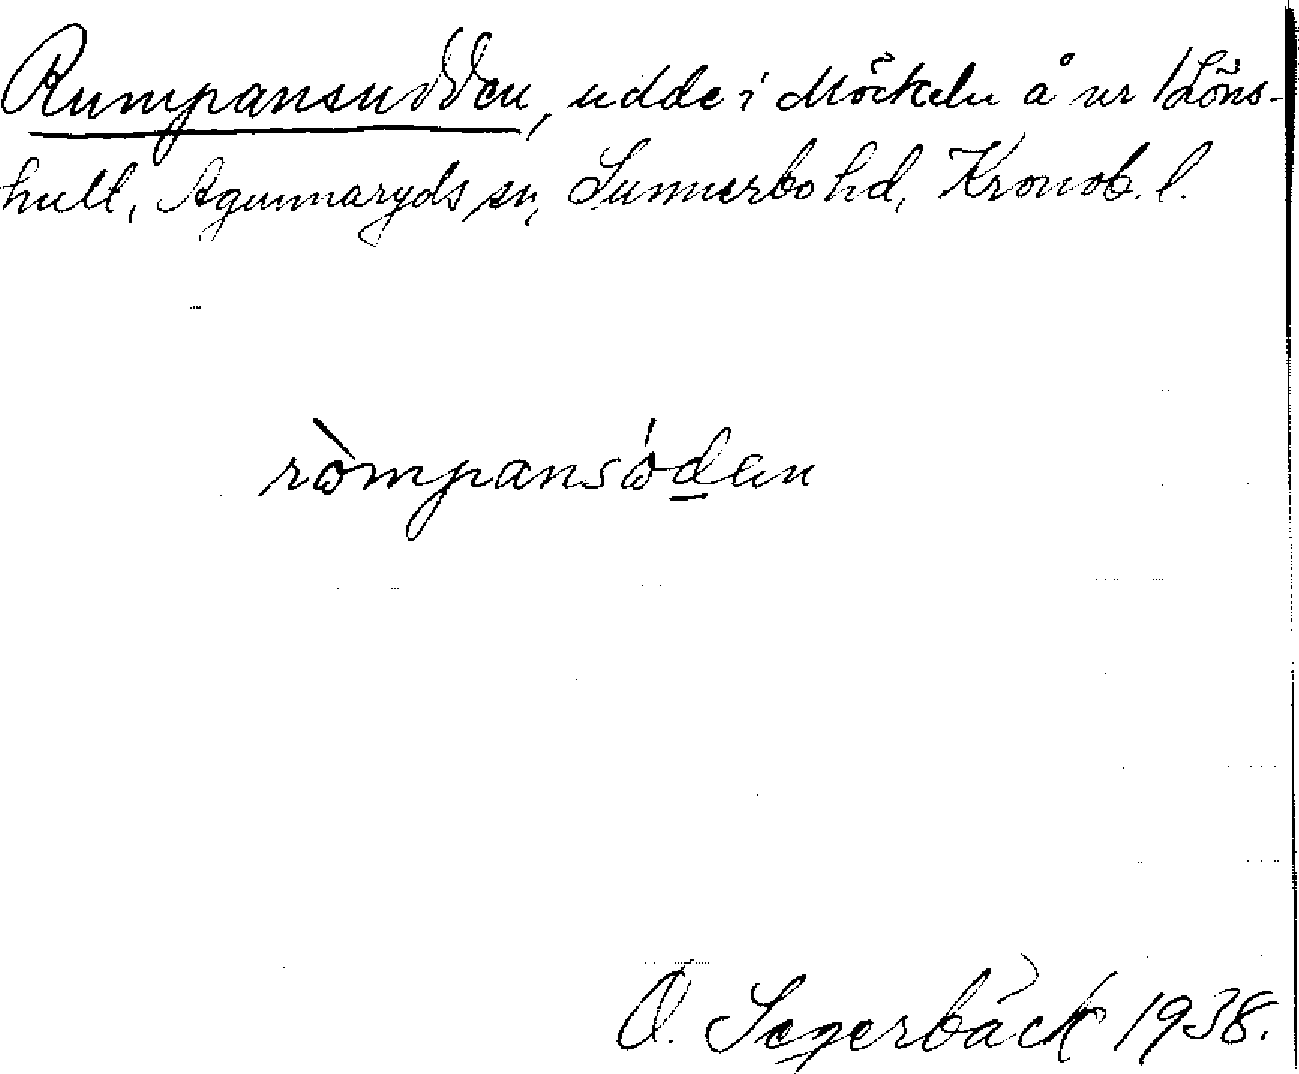 Rumpansudden, udde i Möckeln å nr 1 Löns-
hult, Agunnaryds sn, Sunnerbo hd, Kronob. l.
ròmpansóden
O. Segerbäck 1938.